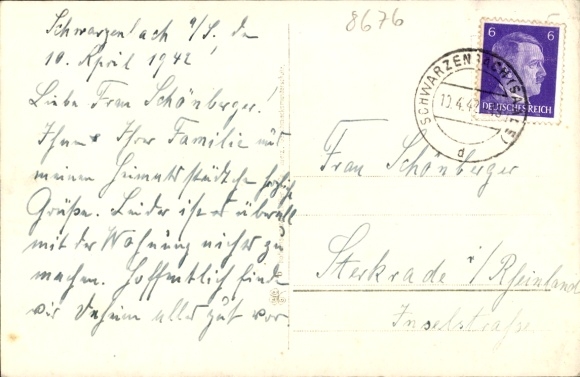 Schwarzenbach a/S. den
10. April 1942!
Liebe Frau Schönberger!
Ihnen Ihrer Familie aus
meinen Heimatstädtchen herzliche
Grüße. Leider ist es überall
mit der Wohnung nichts zu
machen. Hoffentlich finde
wir Daheim alles gut vor
8676
6 6
DEUTSCHES REICH
SCHWARZENBACH (SAALE)
10.4.42
d
Frau Schönberger
Sterkrade i/Rheinland
Inselstraße